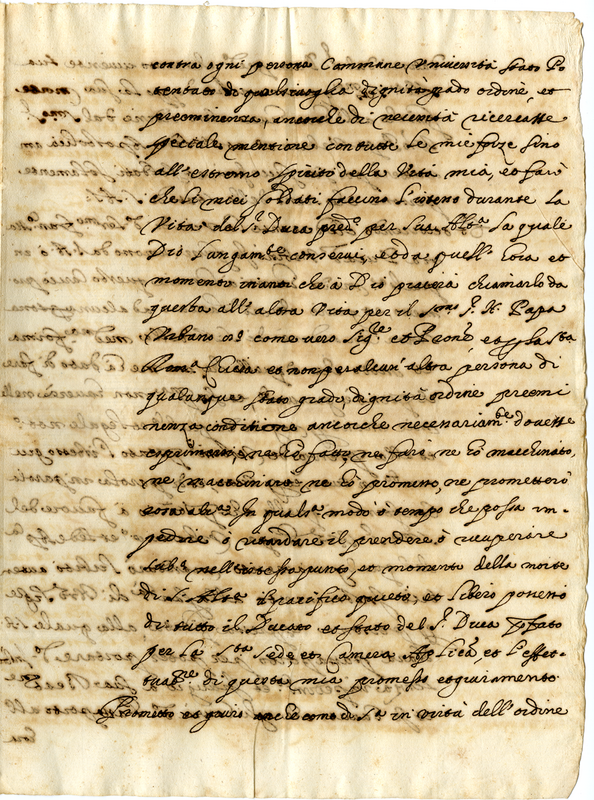 contra ogni persona Commune Università stato Po
tentato di qualsivoglia dignità grado ordine, et
preeminenza, ancorche di necessità ricercasse
spetiale mentione con tutte le mie forze sino
all' estremo spirito della Vita mia, et farò
che li miei soldati faccino l'istesso durante la
Vita del S.r Duca pred.o per Sua Alt.a la quale
Dio lungam.te conservi, et da quell' hora et
momento inanti che à Dio piacerà chiamarlo da
questa all' altra Vita per il S. Papa
Urbano come vero Sig.re et Prone et la sta
et non per alcun' altra persona di
qualunque stato grado, dignità ordine preemi
nenza conditione ancorche necessariam.te dovesse
esprimersi, ne hò fatto, ne farò ne hò macchinato,
ne macchinarò ne hò promesso, ne prometterò
cosa alc.a in quals.a modo ò tempo che possa im
pedire ò ritardare il prendere ò recuperare
nell' istesso punto, et momento della morte
di S. Alt.a il pacifico quieto, et libero possesso
di tutto il Ducato et stato del S.r Duca
per la S.ta Sede, et Camera Ap.lica et l'effet-
di questa mia promessa et giuramento
Prometto et giuro anche come di S.a in virtà dell' ordine